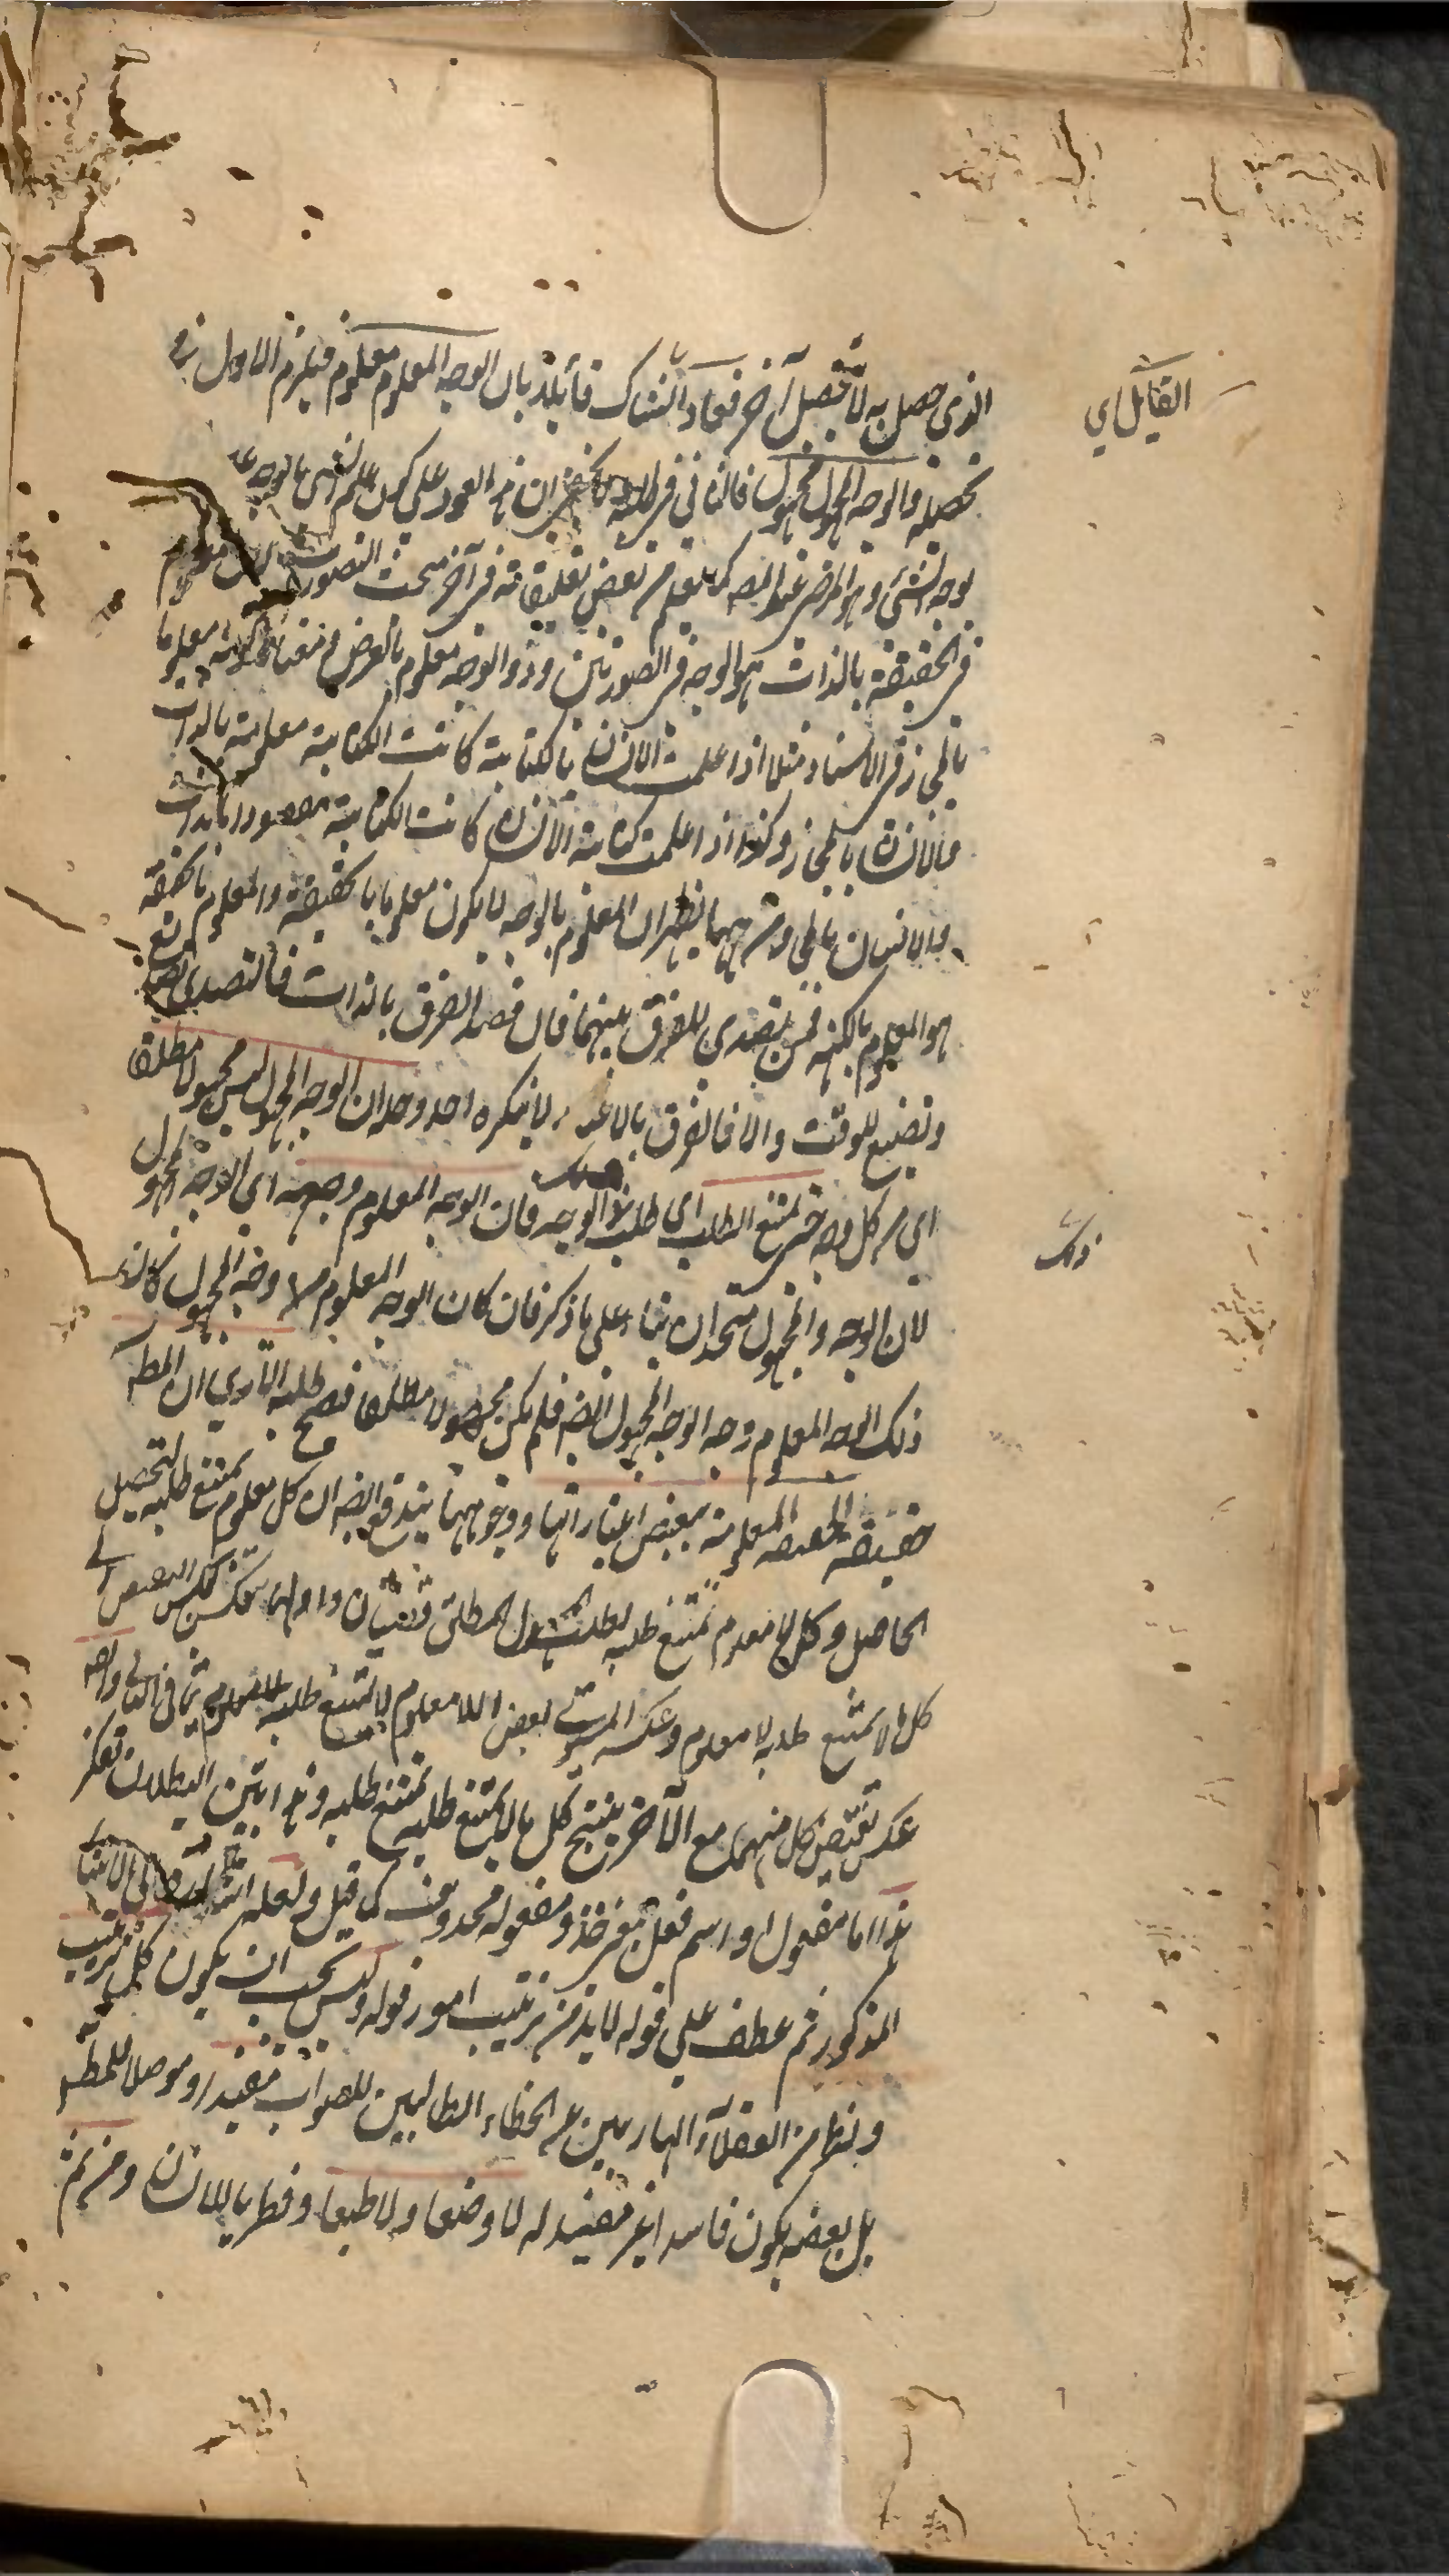 القايل اي
الذي حصل به لا تحصل آخر فعاد الشاك قائلا بان الوجه المعلوم معلوم فيلزم الاول
تحصيله والوجه المجهول مجهول فالثاني في طلبه ان هذا العود على كون علم الشئ بالوجه
بوجه الشئ وهو المرضي عند المص كما يعلم من بعض تعليقاته في آخر مبحث التصورات لان معلوم
في الحقيقة بالذات هو الوجه في الصورتين وذو الوجه معلوم بالعرض معلوما
بالمجاز في الاسناد مثلا اذا علمت الانسان بالكتابة كانت الكتابة معلومة بالذات
والانسان بالمجاز وكذا اذا علمت كتابة الانسان كانت الكتابة مقصودا بالذات
والانسان بالمجاز ومن ههنا يظهر ان المعلوم بالوجه لا يكون معلوما بالحقيقة والمعلوم بالحقيقة
هو المعلوم بالكنه فمن تصدى للفرق بينهما فان قصد الفرق بالذات فالتصدي
وتضييع للوقت والا فالفرق بالاعتبار لا ينكره احد وحله ان الوجه المجهول ليس مجهولا مطلقا
اي من كل وجه حتى يمتنع الطلب اي طلب ذلك الوجه فان الوجه المعلوم وجهه اي الوجه المجهول
ذلك
لان الوجه والمجهول متحدان بناء على ما ذكر فان كان الوجه المعلوم وجه المجهول كان
ذلك الوجه المعلوم وجه الوجه المجهول ايضا فلم يكن مجهولا مطلقا فصح طلبه الا ترى ان المط
حقيقة الحقيقة المعلومة ببعض اعتباراتها ووجوهها يندفع ايضا ان كل معلوم يمتنع طلبه لتحصيل
الحاصل وكل لا معلوم يمتنع طلبه لطلب المجهول المطلق قضيتان واولهما تنعكس بعكس النقيض الى
كل ما لا يمتنع طلبه لا معلوم وعكسه المستوي بعض اللامعلوم لا يمتنع طلبه
عكس نقيض كل منهما مع الآخر ينتج كل ما لا يمتنع طلبه يمتنع طلبه وهذا بين البطلان
هذا اما مفعول او اسم فعل بمعنى خذ ومفعوله محذوف كما قيل ولعله اشار
المذكور ثم عطف على قوله لا بد من ترتيب امور قوله وليس يجب ان يكون كل ترتيب
ونظم من العقلاء الهاربين عن الخطاء الطالبين للصواب مفيدا وموصلا للمط
بل بعضه يكون فاسدا غير مفيد له لا وضعا ولا طبعا وفطريا للانسان ومن ثم